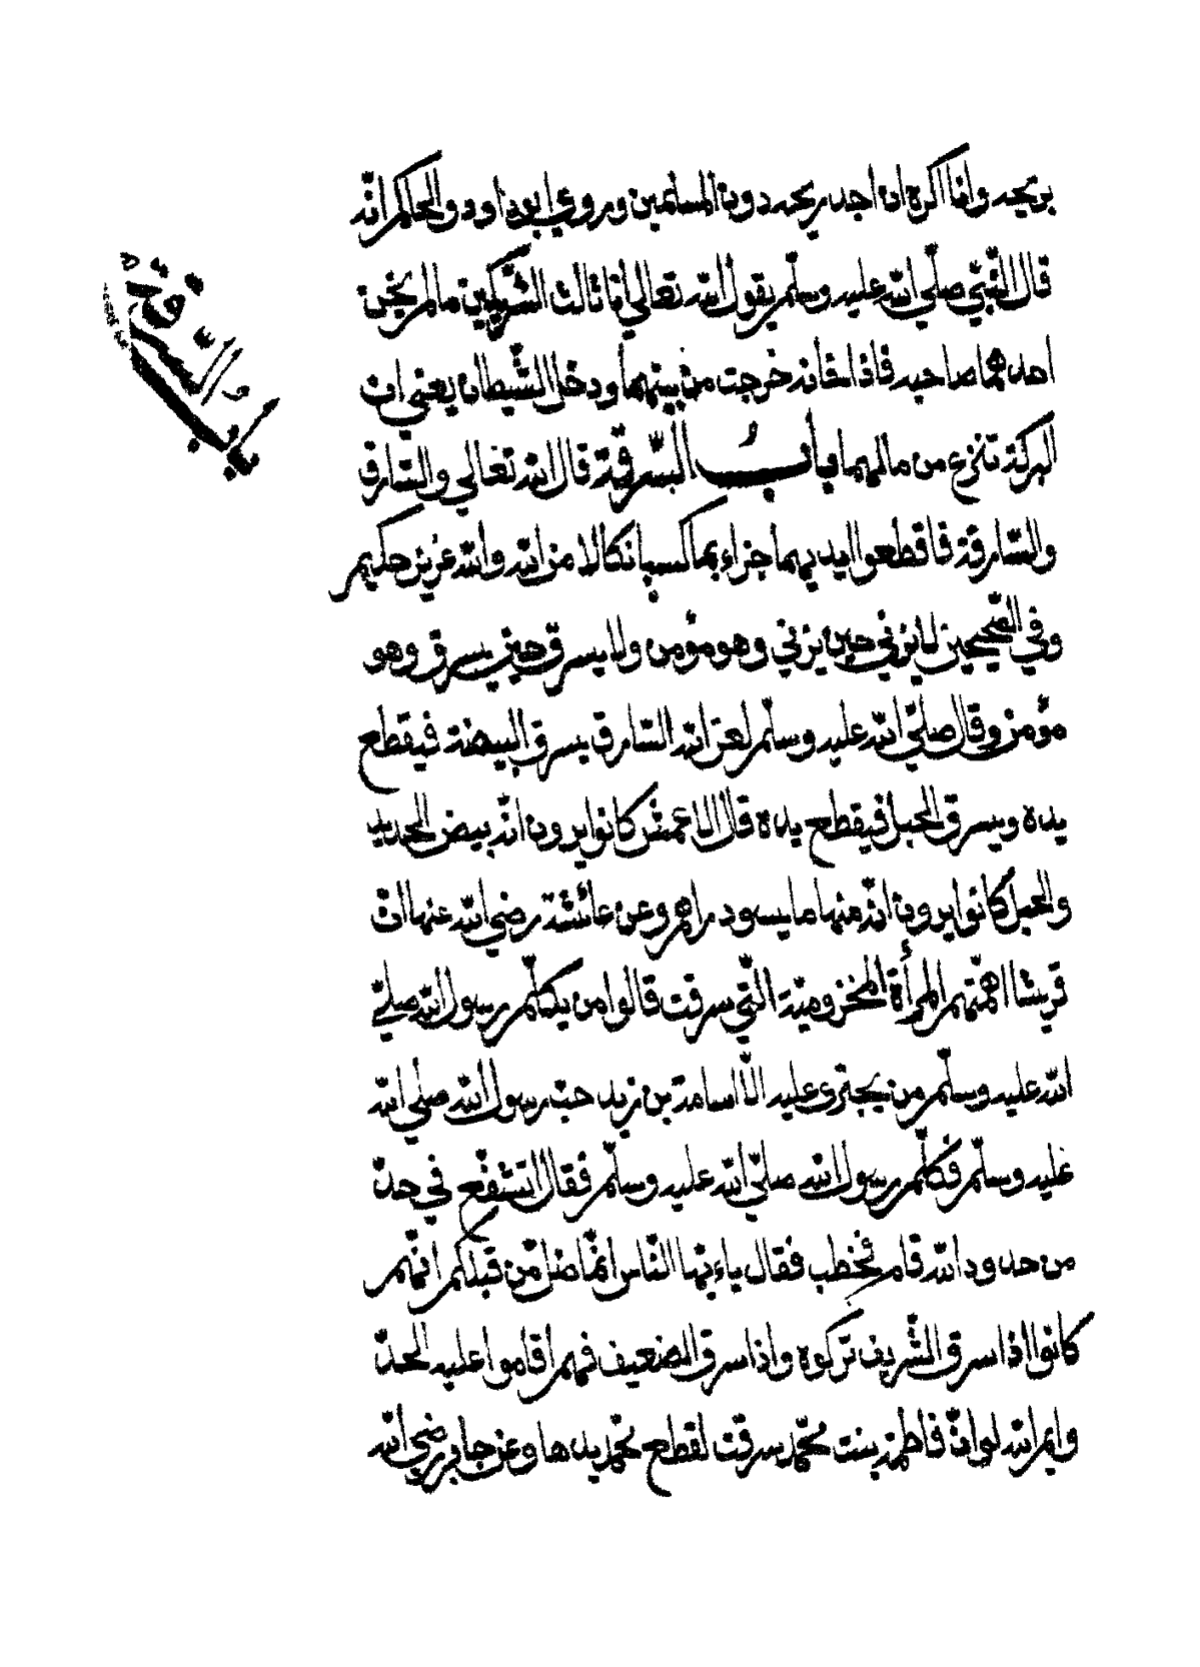 بريحه وانما اكره ان اجد ريحه دون المسلمين وروي ابو داود والحاكم انّه
قال النّبيّ صلّي اللّه عليه وسلّم يقول اللّه تعالي انا ثالث الشّريكين مالم يخن
احدهما صاحبه فاذا خانه خرجت من بينهما ودخل الشّيطان يعني ان
البركة تنزع من مالهما باب السّرقة قال اللّه تعالي والسّارق
والسّارقة فاقطعوا ايديهما جزاء بما كسبا نكالا من اللّه واللّه عزيز حكيم
وفي الصّحيحين لا يزني حين يزني وهو مؤمن ولا يسرق حين يسرق وهو
مؤمن وقال صلّي اللّه عليه وسلّم لعن اللّه السّارق يسرق البيضة فيقطع
يده ويسرق الحبل فيقطع يده قال الاعمش كانوا يرون انّه بيض الحديد
والحبل كانوا يرون انّه منها ما يسود دراهم وعن عائشة رضي اللّه عنها انّ
قريشا اهمّتهم المرأة المخزوميّة الّتي سرقت قالوا من يكلّم رسول اللّه صلّي
اللّه عليه وسلّم من يجتري عليه الّا اسامة بن زيد حبّ رسول اللّه صلّي اللّه
عليه وسلّم فكلّم رسول اللّه صلّي اللّه عليه وسلّم فقال اتشفّع في حدّ
من حدود اللّه قام فخطب فقال ياءيّها النّاس انّما ضلّ من قبلكم انّهم
كانوا اذا سرق الشّريف تركوه واذا سرق الضعيف فيهم اقاموا عليه الحدّ
وايم اللّه لو انّ فاطمة بنت محمّد سرقت لقطع محمّد يدها وعن جابر رضي اللّه
باب السّرقة